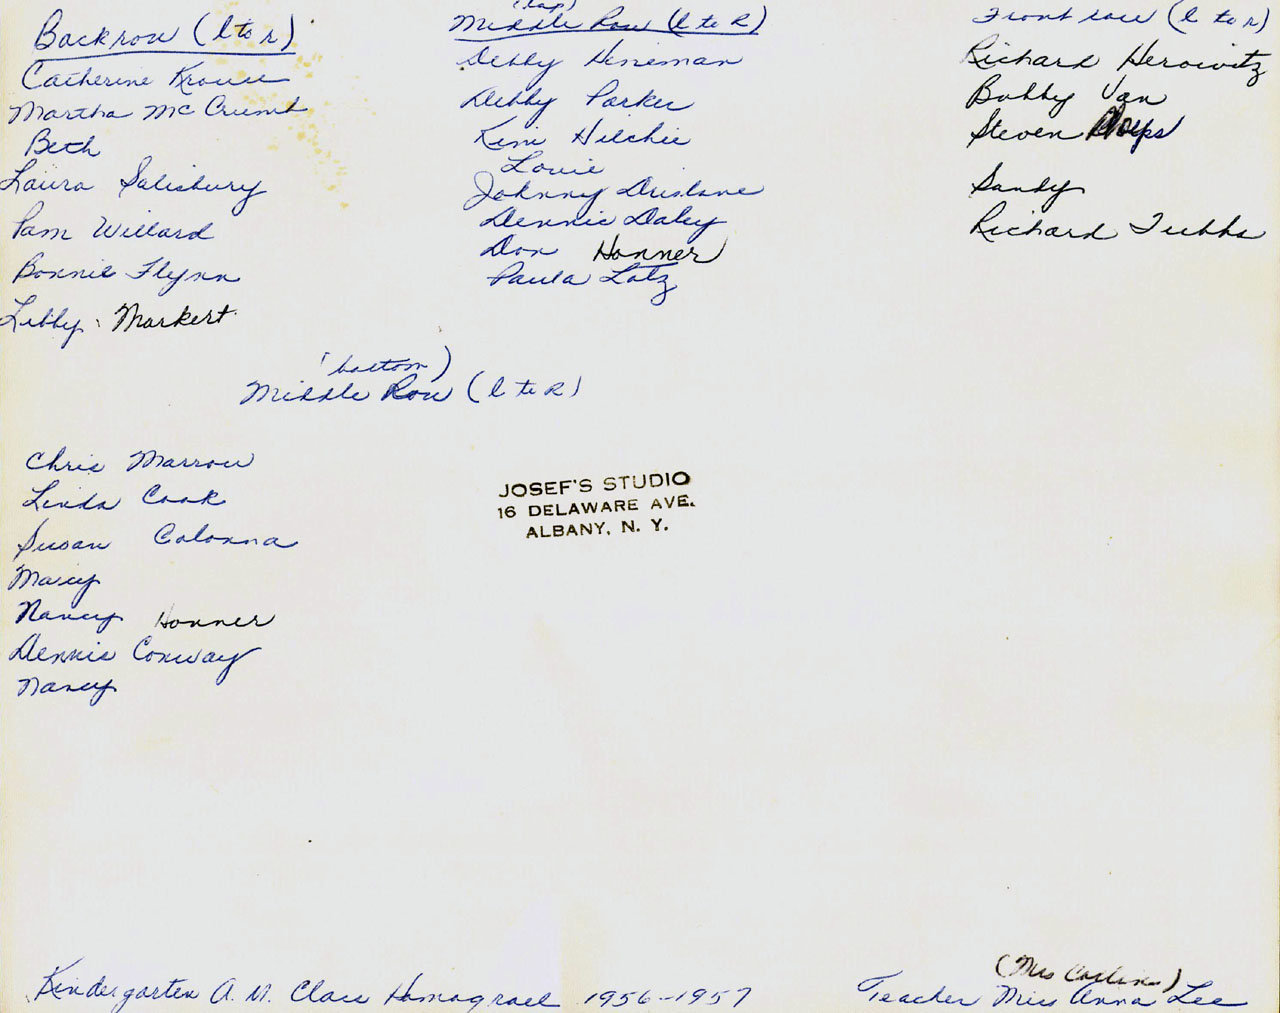 Back row (l to r)
Catherine Krause
Martha McCrumb
Beth
Laura Salisbury
Pam Willard
Bonnie Flynn
Libby Markert
(top)
Middle Row (l to R)
Debby Hineman
Debby Parker
Kim Hilchie
Louie
Johnny Dislane
Dennis Daley
Don Honner
Paula Lotz
Front row (l to r)
Richard Herowitz
Bobby Van
Steven
Sandy
Richard Tubbs
(bottom)
Middle Row (l to R)
Chris Marrow
Linda Cook
Susan Colonna
Mary
Nancy Honner
Dennis Conway
Nancy
JOSEF'S STUDIO
16 DELAWARE AVE.
ALBANY, N. Y.
(Mrs
Kindergarten A.M. Class Hamagrael 1956-1957
Teacher Miss Anna Lee